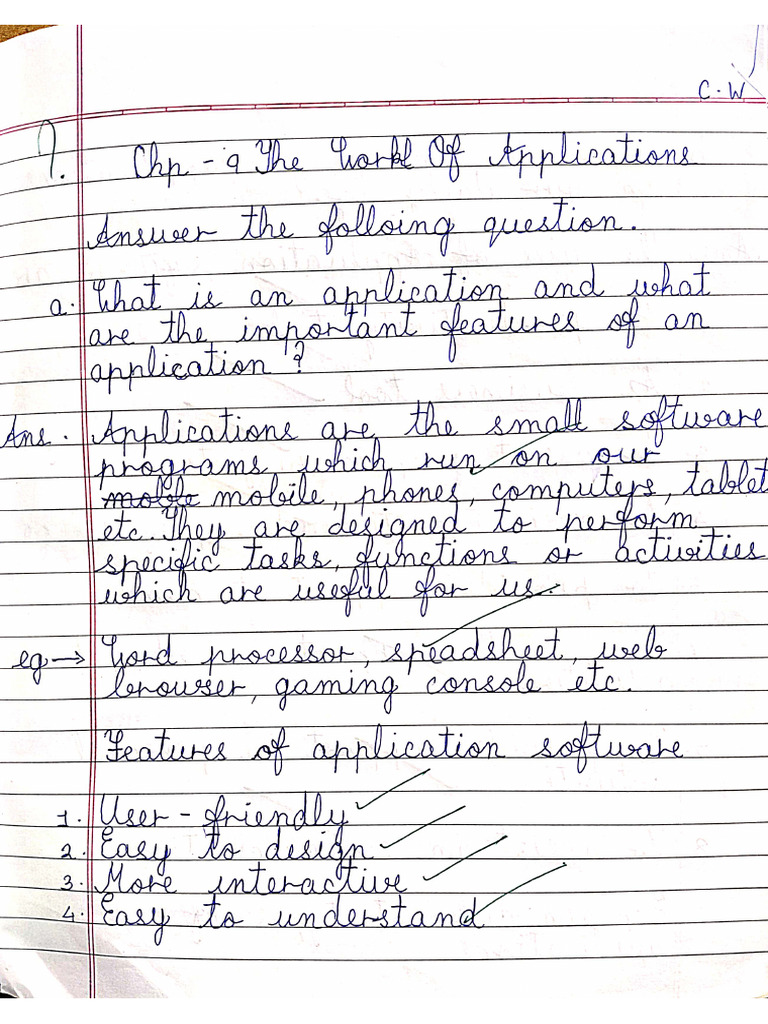 C.W
7. Chp - 9 The World Of Applications
Answer the folloing question.
a. What is an application and what
are the important features of an
application ?
Ans. Applications are the small software
programs which run on our
moble mobile, phones, computers, tablet
etc. They are designed to perform
specific tasks, functions or activities
which are useful for us.
eg → Word processor, speadsheet, web
browser, gaming console etc.
Features of application software
1. User - friendly
2. Easy to design
3. More interactive
4. Easy to understand